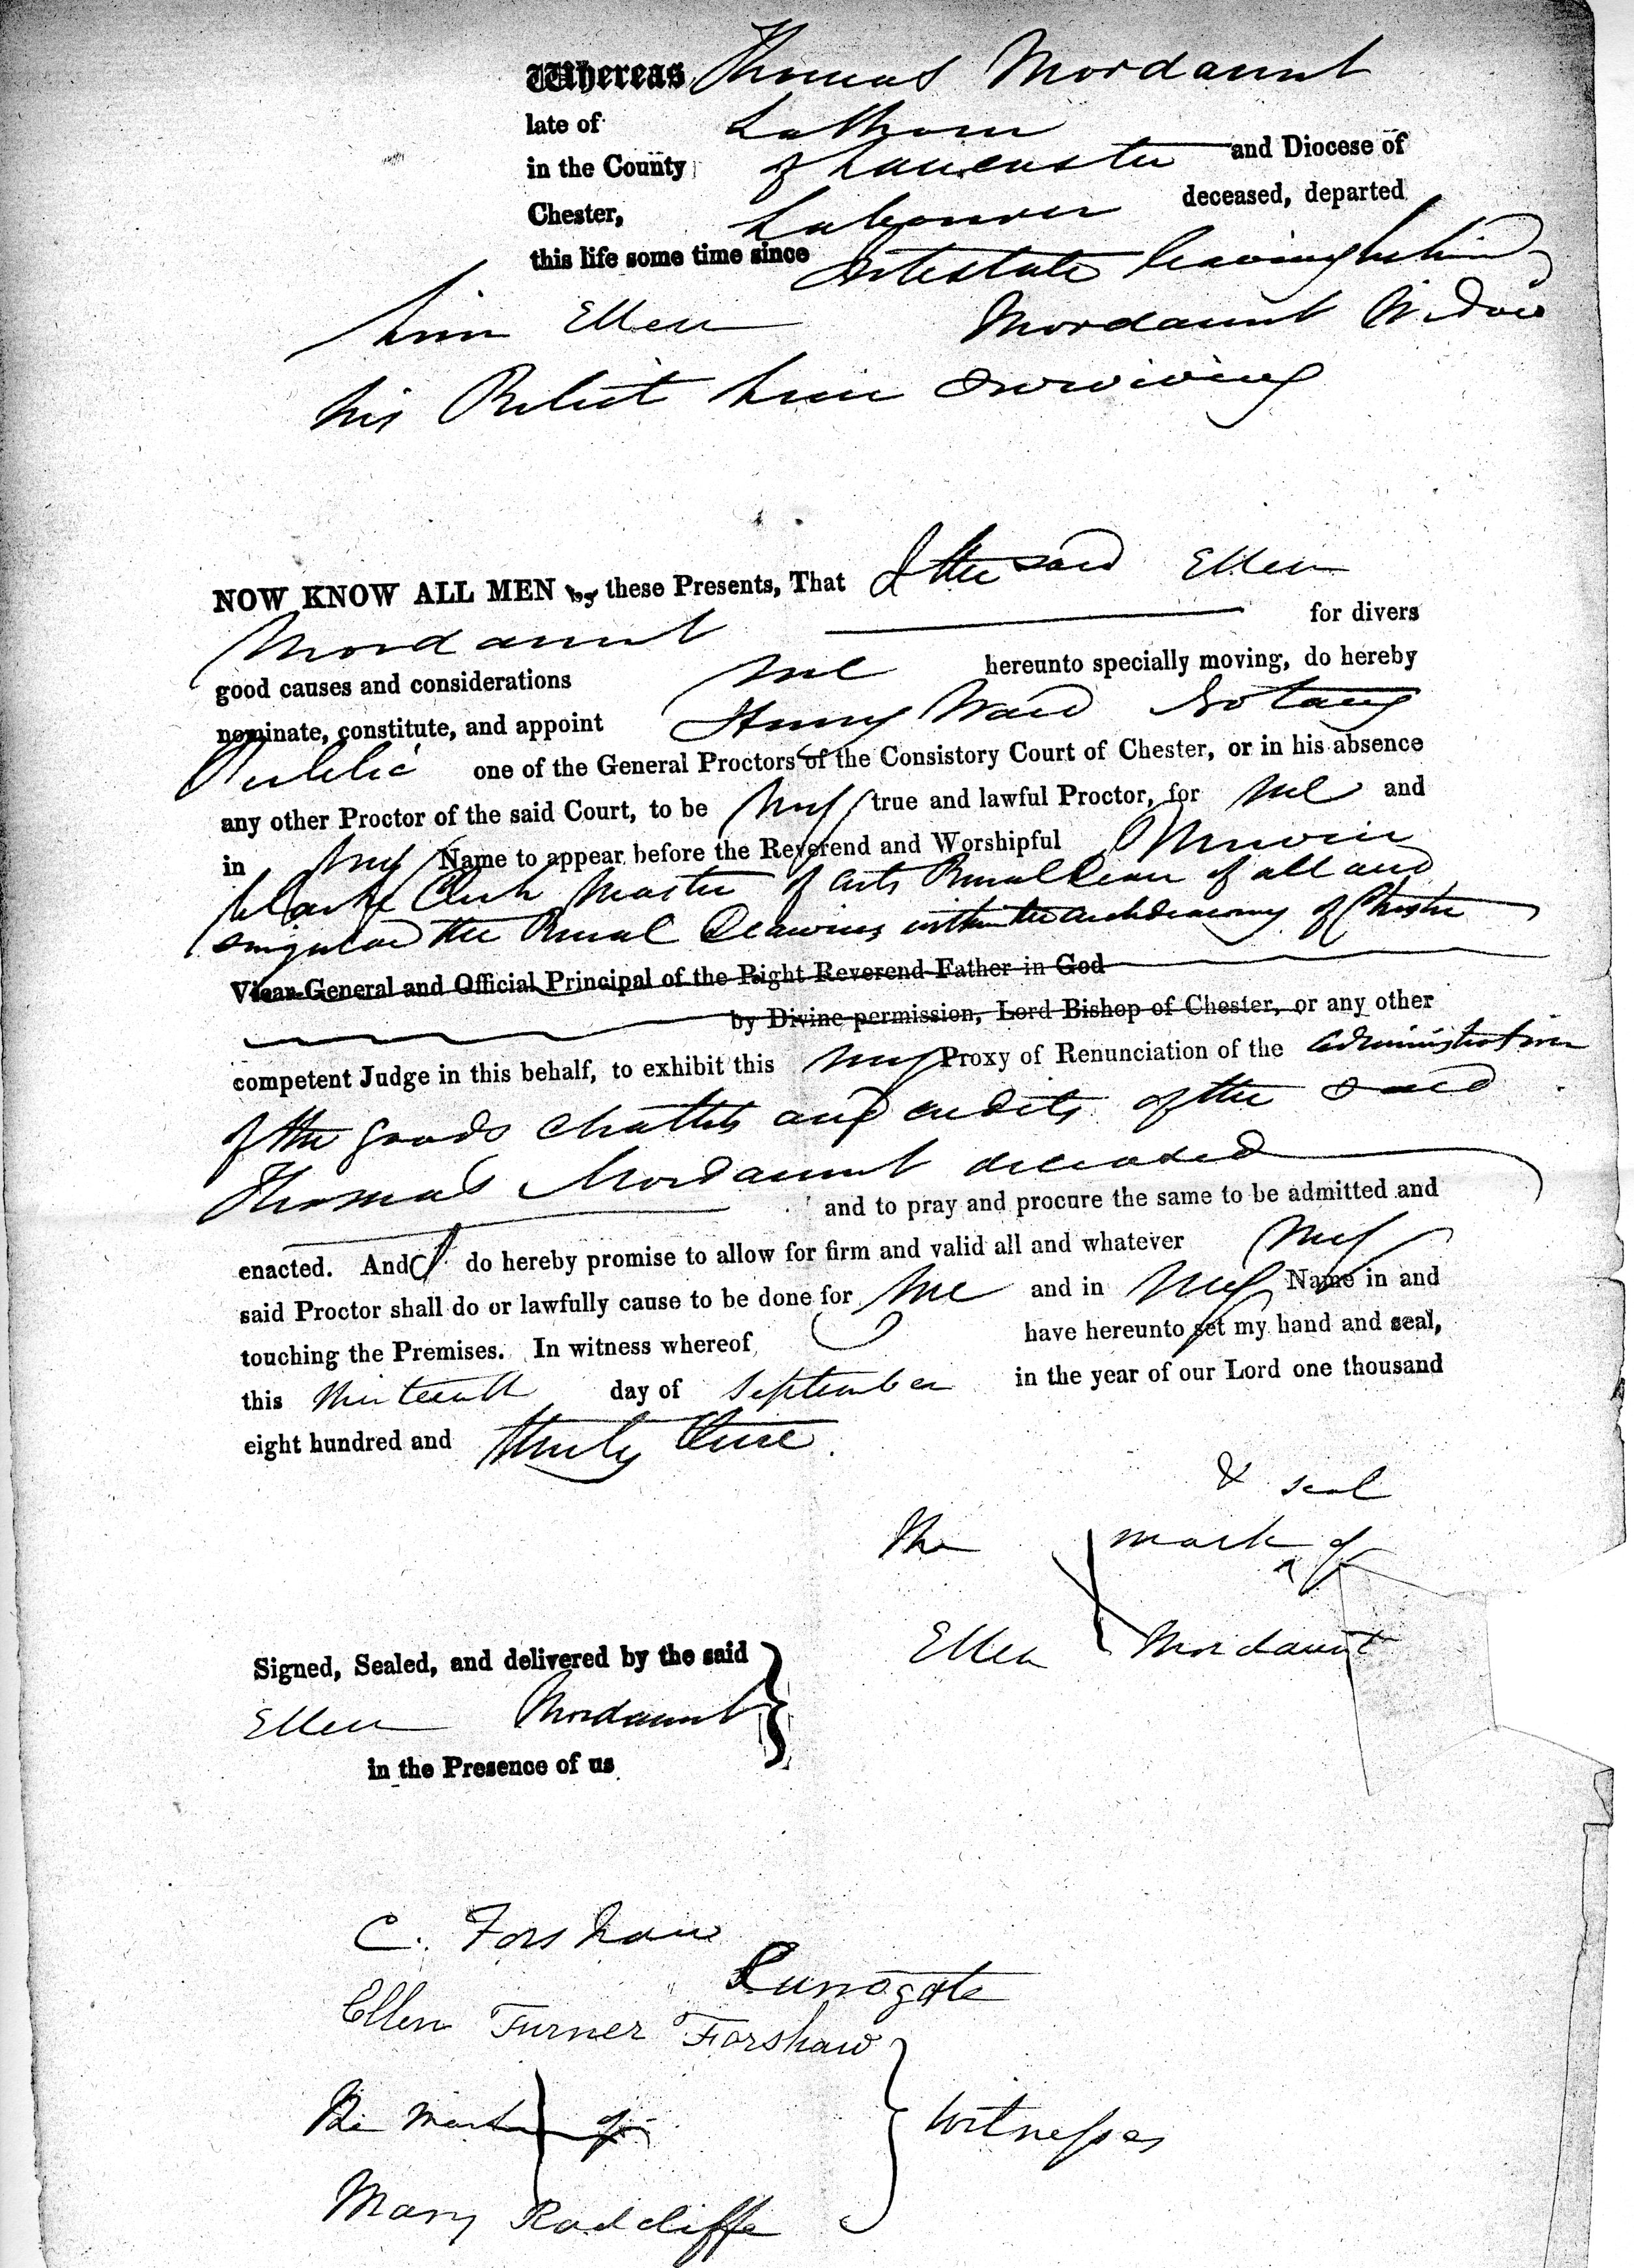 Whereas Thomas Mordaunt
late of Lathom
in the County of Lancaster and Diocese of
Chester, Labourer deceased, departed
this life some time since Intestate leaving behind
him Ellen Mordaunt Widow
his Relict him surviving
NOW KNOW ALL MEN by these Presents, That I the said Ellen
Mordaunt for divers
good causes and considerations me hereunto specially moving, do hereby
nominate, constitute, and appoint Henry Ward Notary
Public one of the General Proctors of the Consistory Court of Chester, or in his absence
any other Proctor of the said Court, to be my true and lawful Proctor, for me and
in my Name to appear before the Reverend and Worshipful Unwin
Clarke Clerk Master of Arts Rural Dean of all and
singular the Rural Deaneries within the archdeaconry of Chester
Vicar-General and Official Principal of the Right Reverend Father in God
by Divine permission, Lord Bishop of Chester, or any other
competent Judge in this behalf, to exhibit this my Proxy of Renunciation of the administration
of the goods chattels and credits of the said
Thomas Mordaunt deceased
and to pray and procure the same to be admitted and
enacted. And I do hereby promise to allow for firm and valid all and whatever my
said Proctor shall do or lawfully cause to be done for me and in my Name in and
touching the Premises. In witness whereof I have hereunto set my hand and seal,
this thirteenth day of September in the year of our Lord one thousand
eight hundred and thirty three.
& seal
The mark of
Ellen Mordaunt
Signed, Sealed, and delivered by the said
Ellen Mordaunt
in the Presence of us
C. Forshaw
Surrogate
Ellen Turner Forshaw
The mark of
Witnesses
Mary Radcliffe